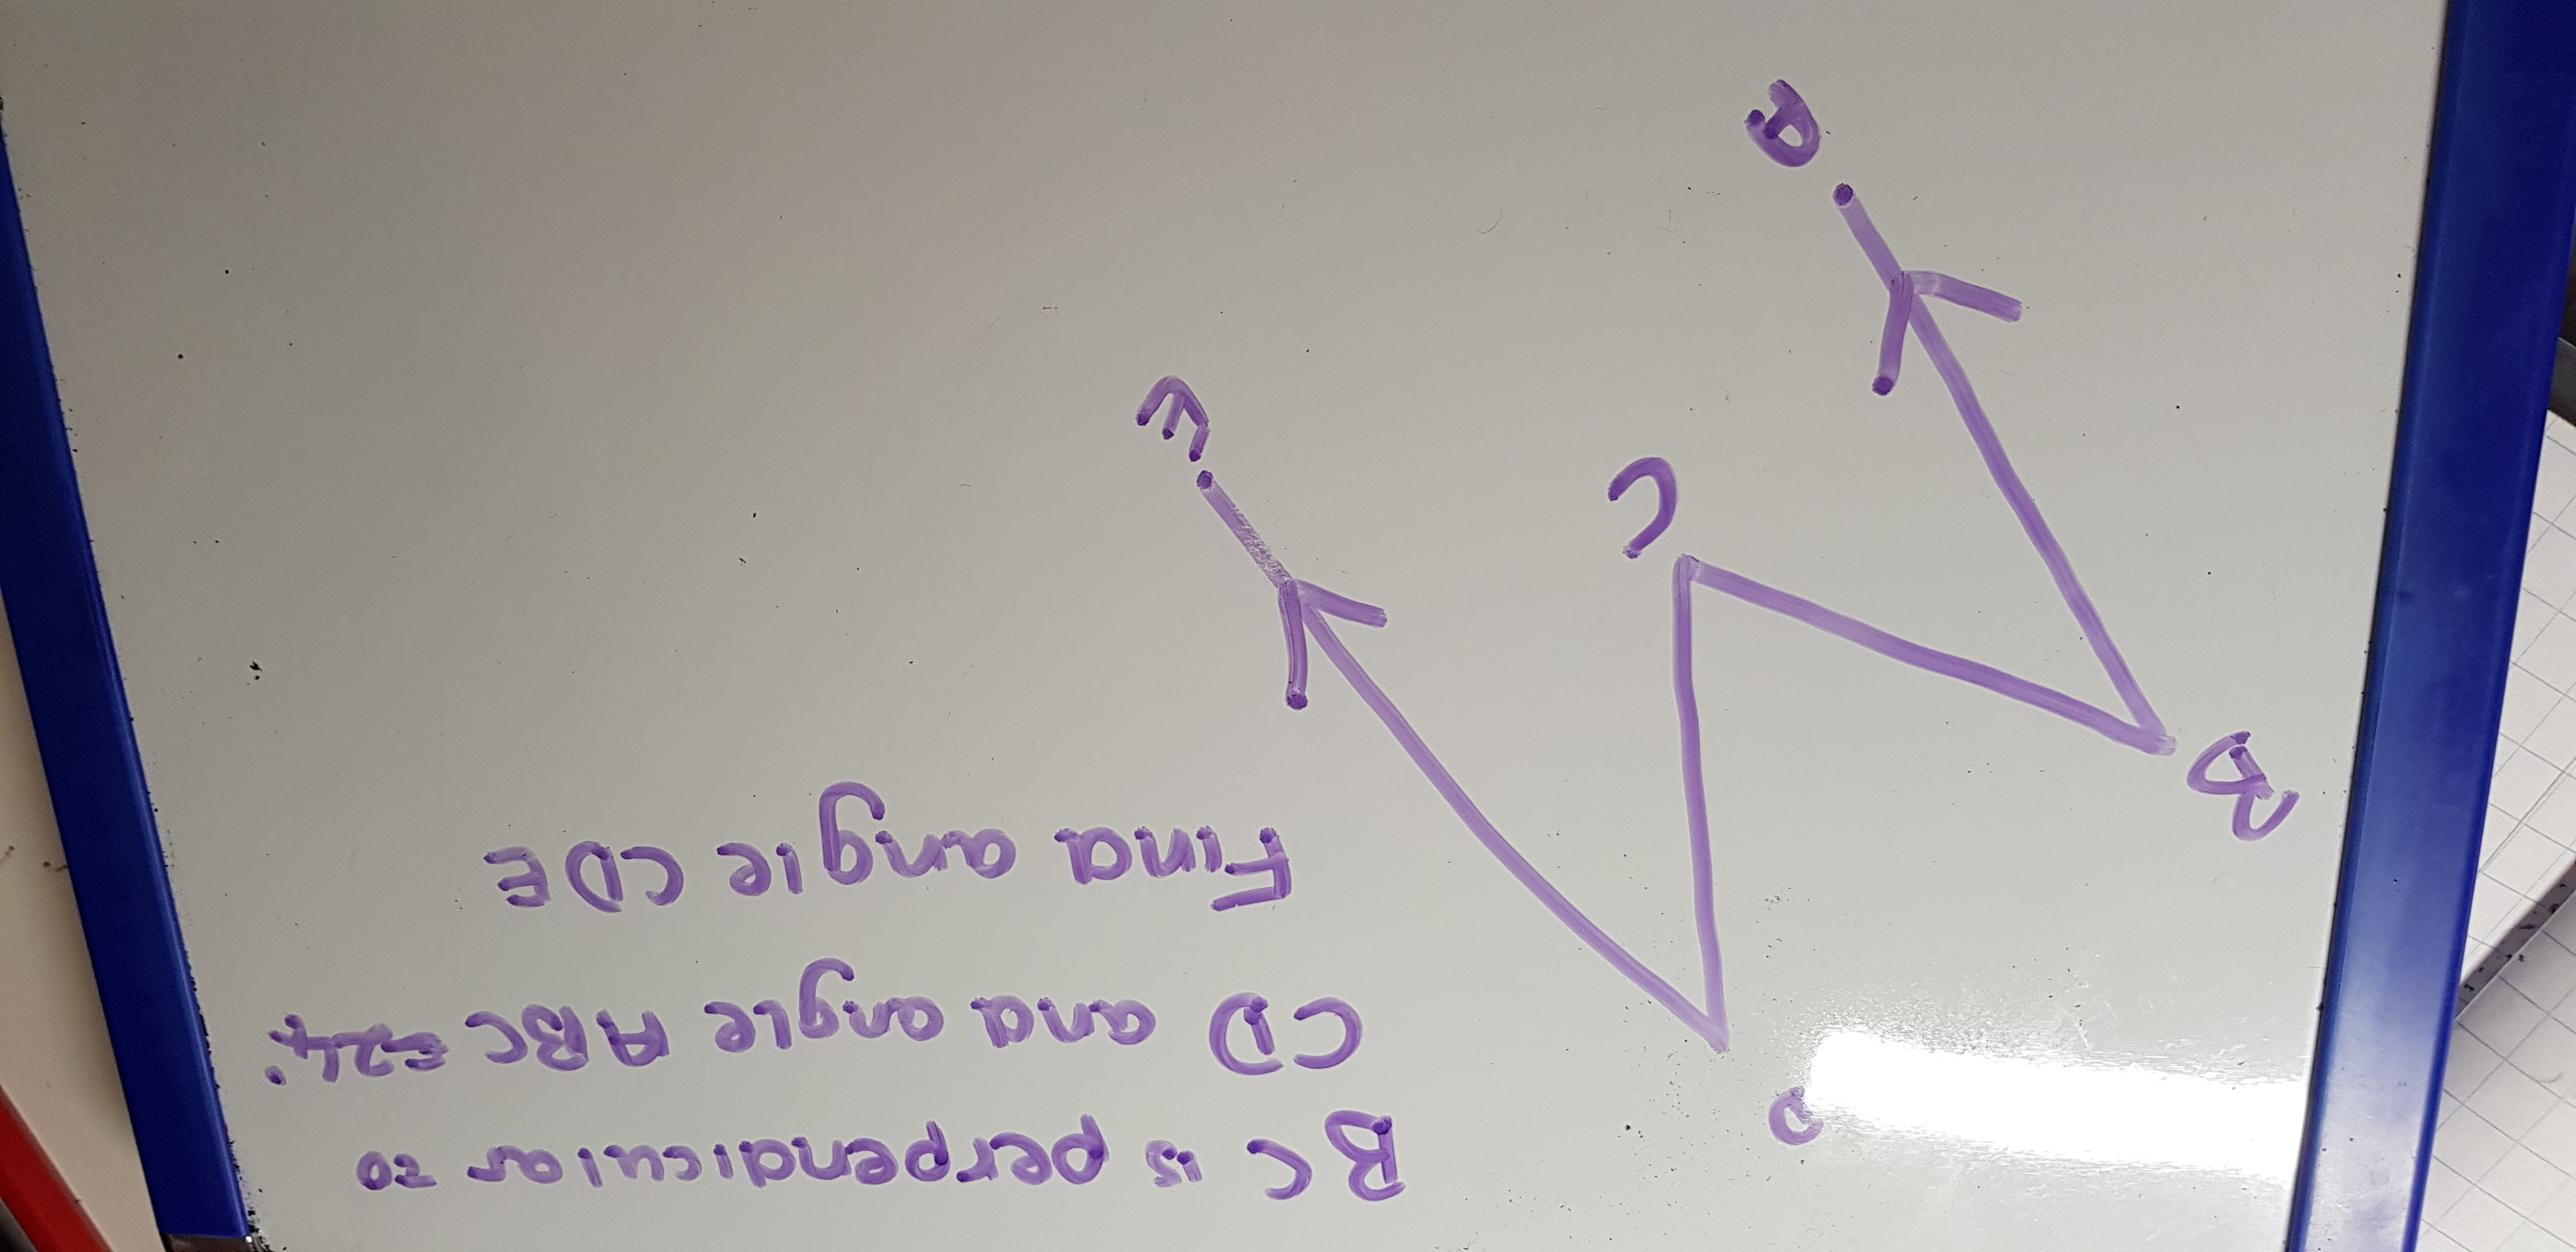 BC is perpendicular to
CD and angle ABC = 24°.
Find angle CDE
D
B
C
E
A